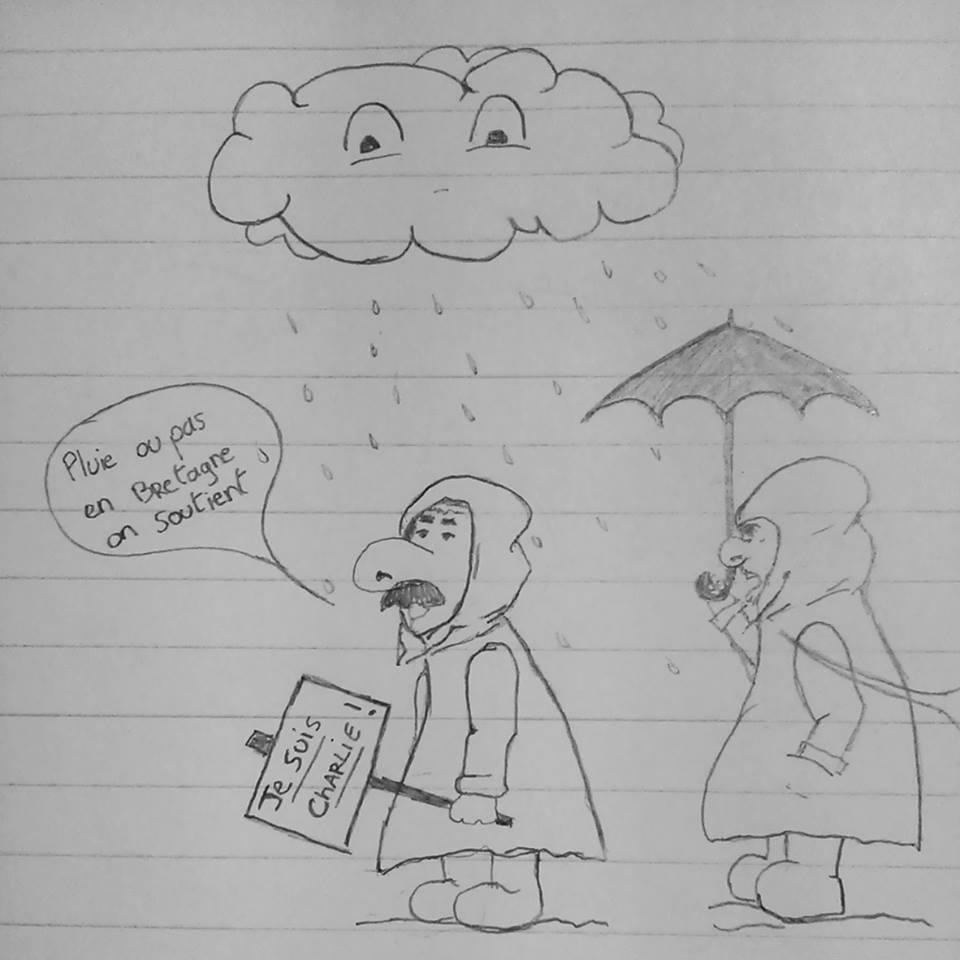 Pluie ou pas
en Bretagne
on soutient
Je suis
Charlie !